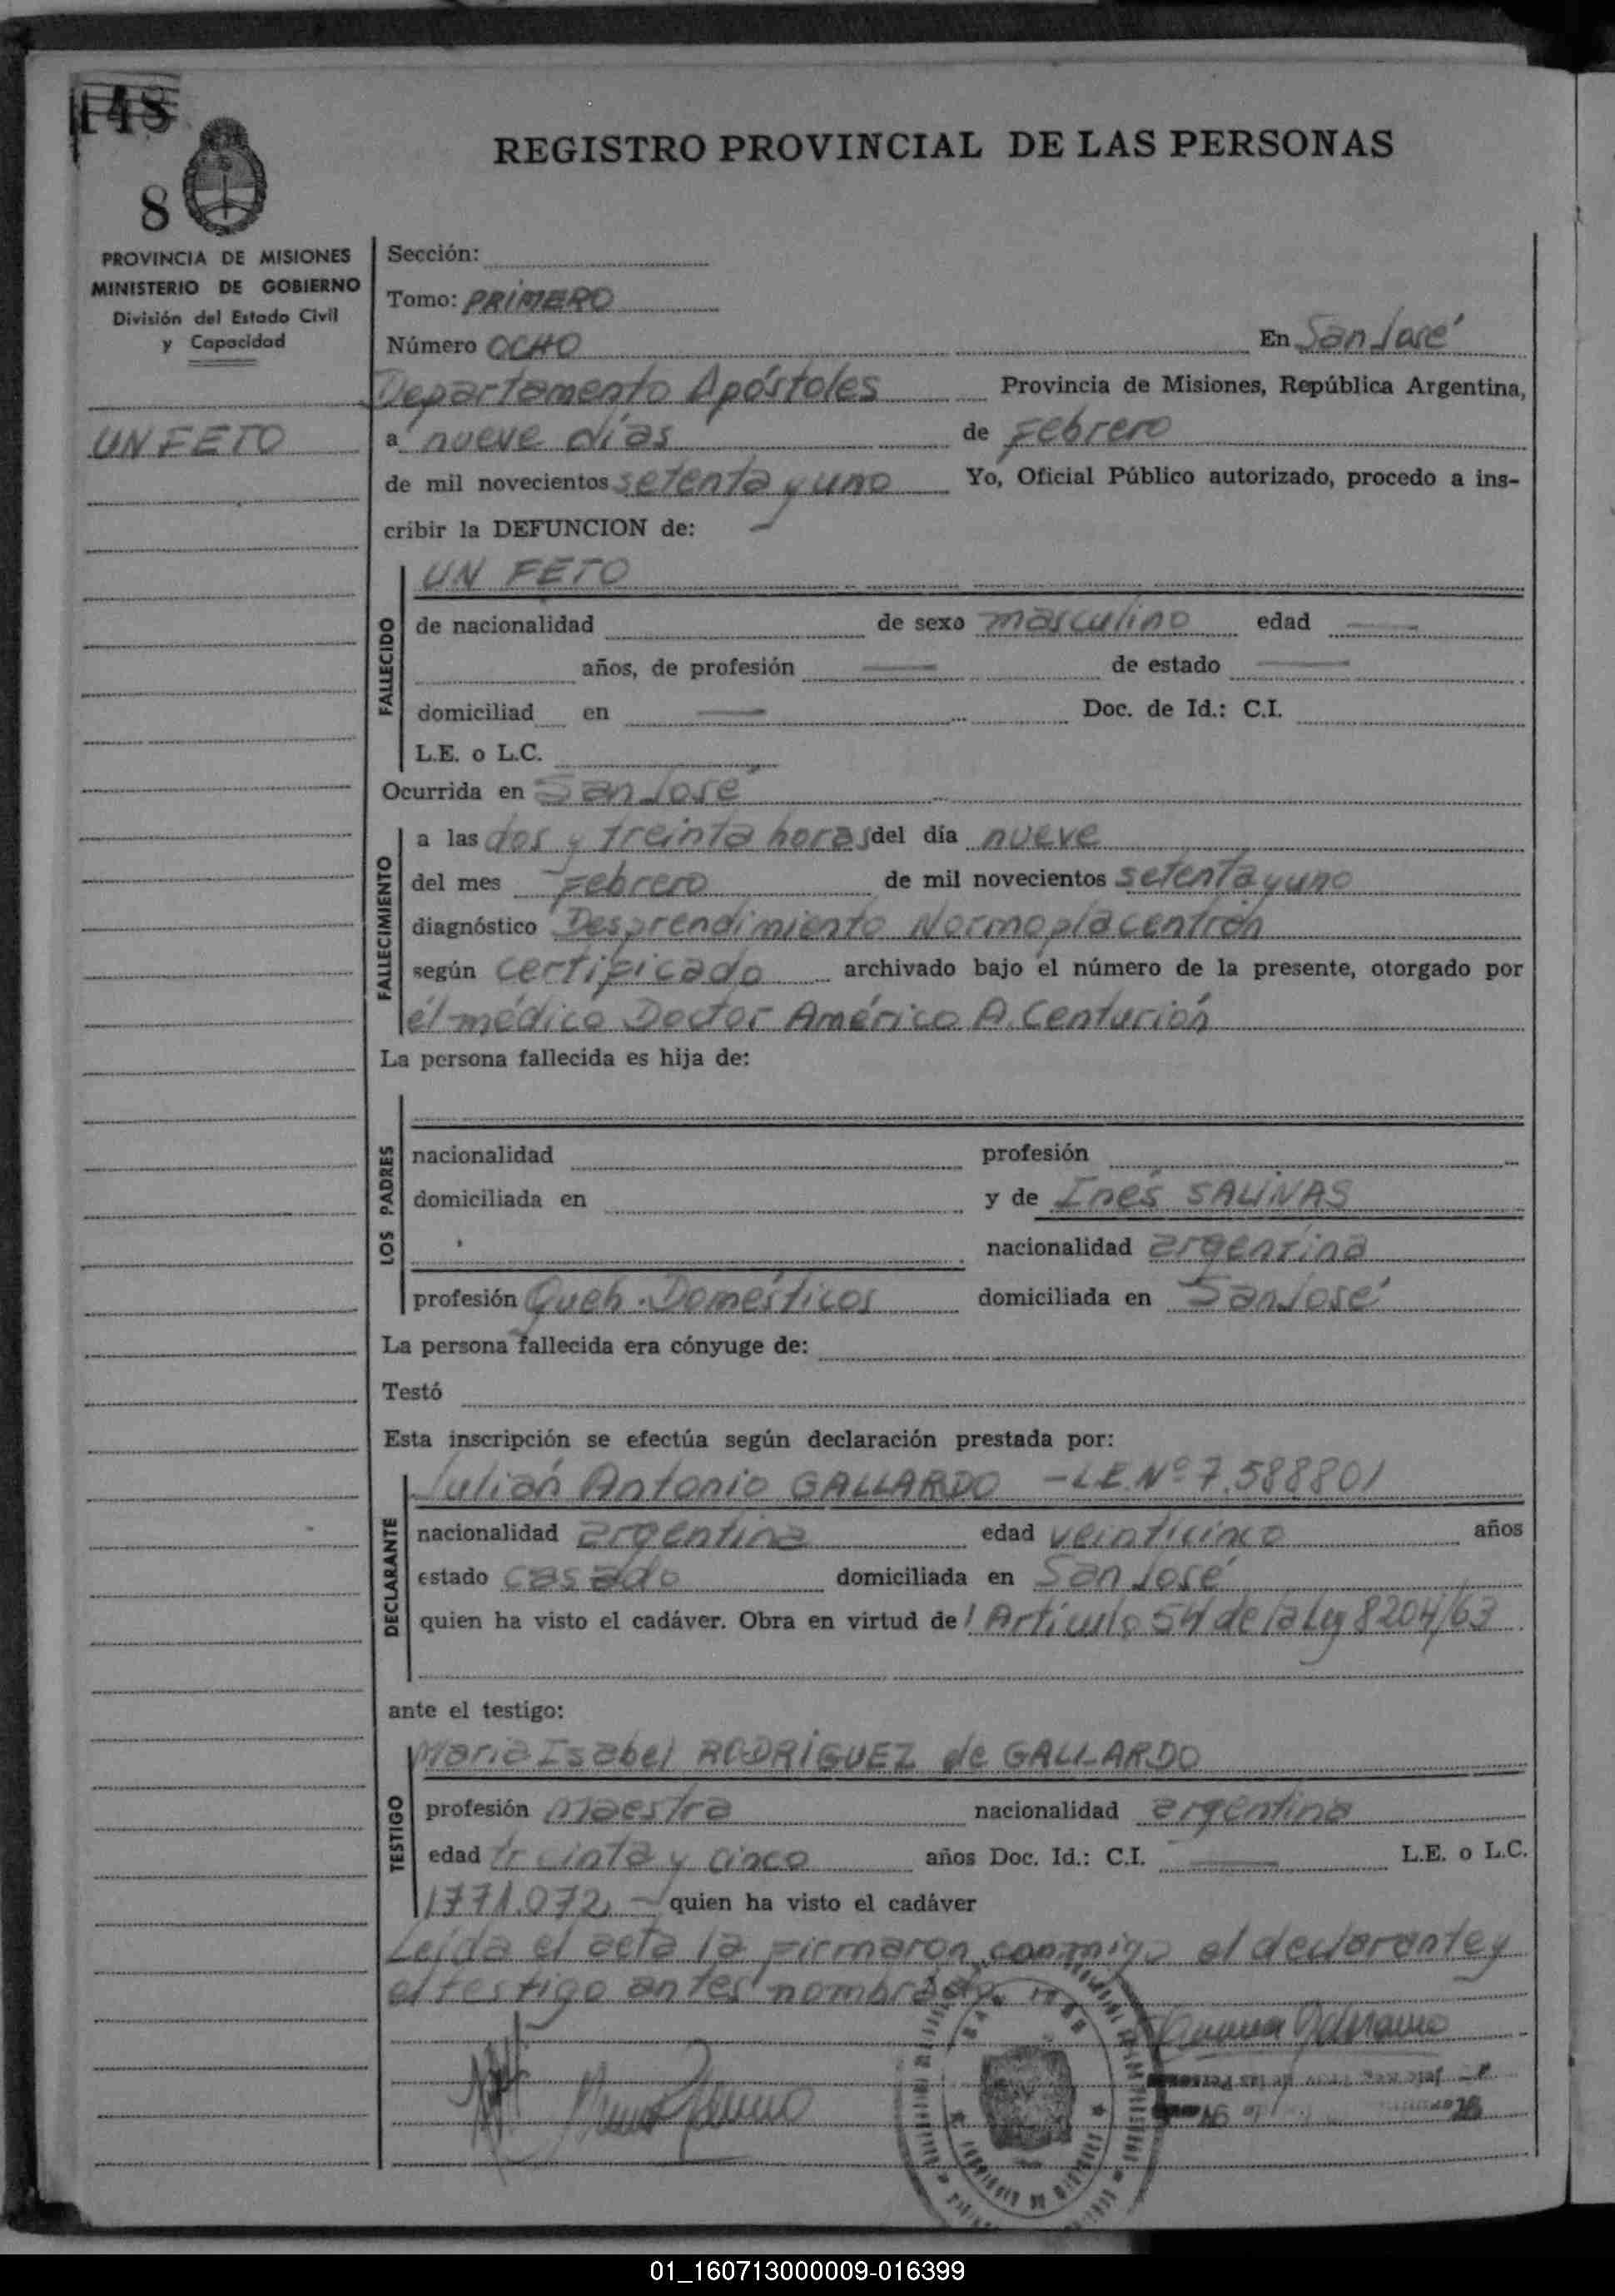 148
8
REGISTRO PROVINCIAL DE LAS PERSONAS
PROVINCIA DE MISIONES
MINISTERIO DE GOBIERNO
División del Estado Civil
y Capacidad
UN FETO
Sección:
Tomo: PRIMERO
Número OCHO En San José
Departamento Apóstoles Provincia de Misiones, República Argentina,
a nueve días de Febrero
de mil novecientos setenta y uno Yo, Oficial Público autorizado, procedo a ins-
cribir la DEFUNCION de:
FALLECIDO
UN FETO
de nacionalidad de sexo masculino edad —
años, de profesión — de estado —
domiciliad en — Doc. de Id.: C.I.
L.E. o L.C.
Ocurrida en San José
FALLECIMIENTO
a las dos y treinta horas del día nueve
del mes Febrero de mil novecientos setenta y uno
diagnóstico Desprendimiento Normoplacentrón
según certificado archivado bajo el número de la presente, otorgado por
él médico Doctor Américo A. Centurión
La persona fallecida es hija de:
LOS PADRES
nacionalidad profesión
domiciliada en y de Inés SALINAS
nacionalidad argentina
profesión Queh. Domésticos domiciliada en San José
La persona fallecida era cónyuge de:
Testó
Esta inscripción se efectúa según declaración prestada por:
DECLARANTE
Julián Antonio GALLARDO - L.E. Nº 7.588801
nacionalidad argentina edad veinticinco años
estado casado domiciliada en San José
quien ha visto el cadáver. Obra en virtud del Artículo 54 de la Ley 8204/63
ante el testigo:
TESTIGO
María Isabel RODRIGUEZ de GALLARDO
profesión Maestra nacionalidad argentina
edad treinta y cinco años Doc. Id.: C.I. — L.E. o L.C.
1771.072 - quien ha visto el cadáver
Leída el acta la firmaron conmigo el declarante y
el testigo antes nombrado.
01_160713000009-016399